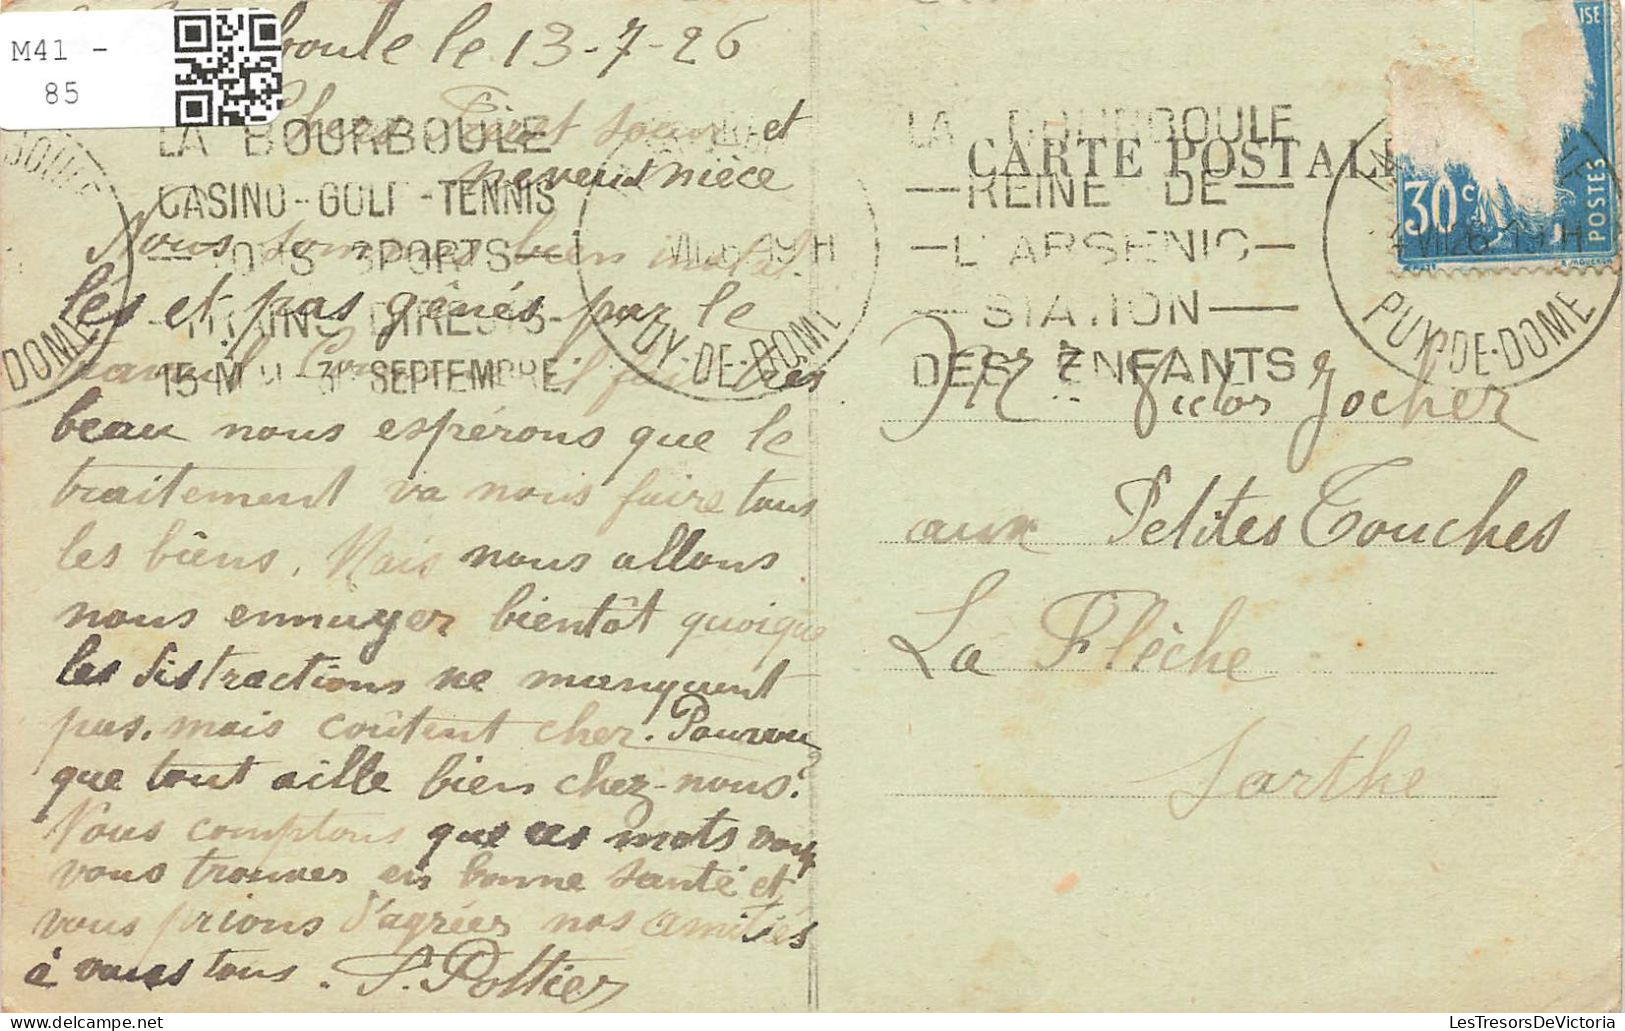 M41 -
85
boule le 13-7-26
et soeur et
neveu et nièce
Nous sommes bien instal
lés et pas gênés par le
il fait très
beau nous espérons que le
traitement va nous faire tous
les biens. Mais nous allons
nous ennuyer bientôt quoique
les distractions ne manquent
pas. mais coûtent cher. Pourvu
que tout aille bien chez-nous.
Nous comptons que ces mots vont
vous trouver en bonne santé et
vous prions d'agréer nos amitiés
à vous tous. S. Pottier
LA BOURBOULE
CASINO - GOLF - TENNIS
- TOUS SPORTS -
- TRAINS DIRECTS -
15 MAI - 30 SEPTEMBRE
VII 26 19 H
PUY-DE-DOME
DOME
LA BOURBOULE
- REINE DE -
- L'ARSENIC -
- STATION -
DES ENFANTS
CARTE POSTALE
30c
POSTES
VII 26 19 H
PUY-DE-DOME
Victor Jocher
aux Petites Touches
La Flèche
Sarthe
LesTresorsDeVictoria